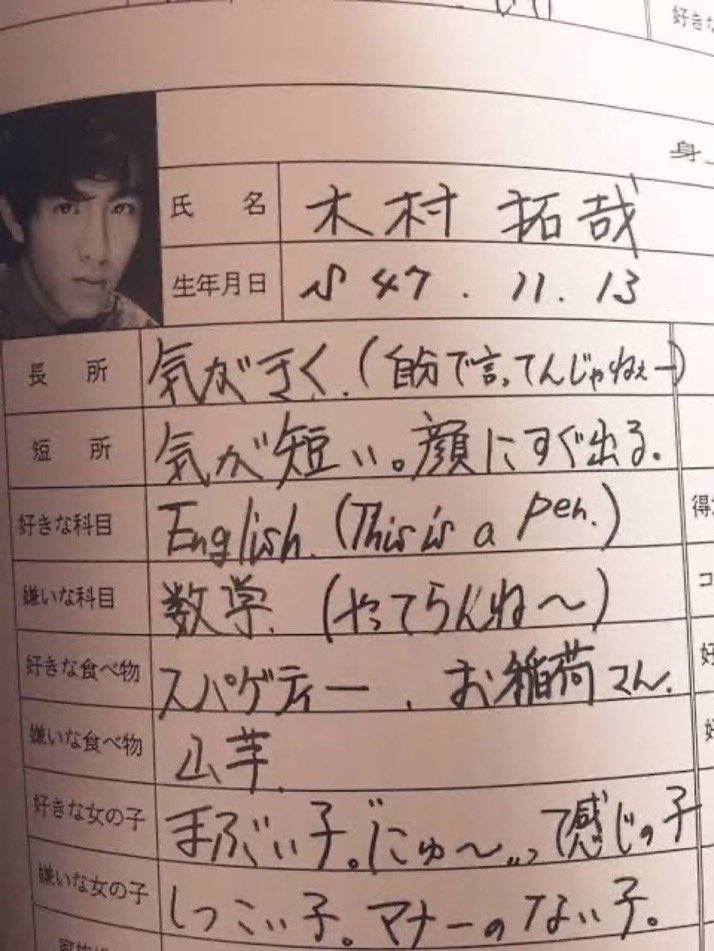 好きな
身
氏 名 木村 拓哉
生年月日 S47.11.13
長 所 気がきく.(自分で言ってんじゃねぇー)
短 所 気が短い。顔にすぐ出る.
好きな科目 English.(This is a pen.)
得
嫌いな科目 数学.(やってらんね〜)
コ
好きな食べ物 スパゲティー.お稲荷さん.
好
嫌いな食べ物 山芋.
好
好きな女の子 まぶい子。にゅ〜って感じの子
嫌いな女の子 しつこい子。マナーのない子。